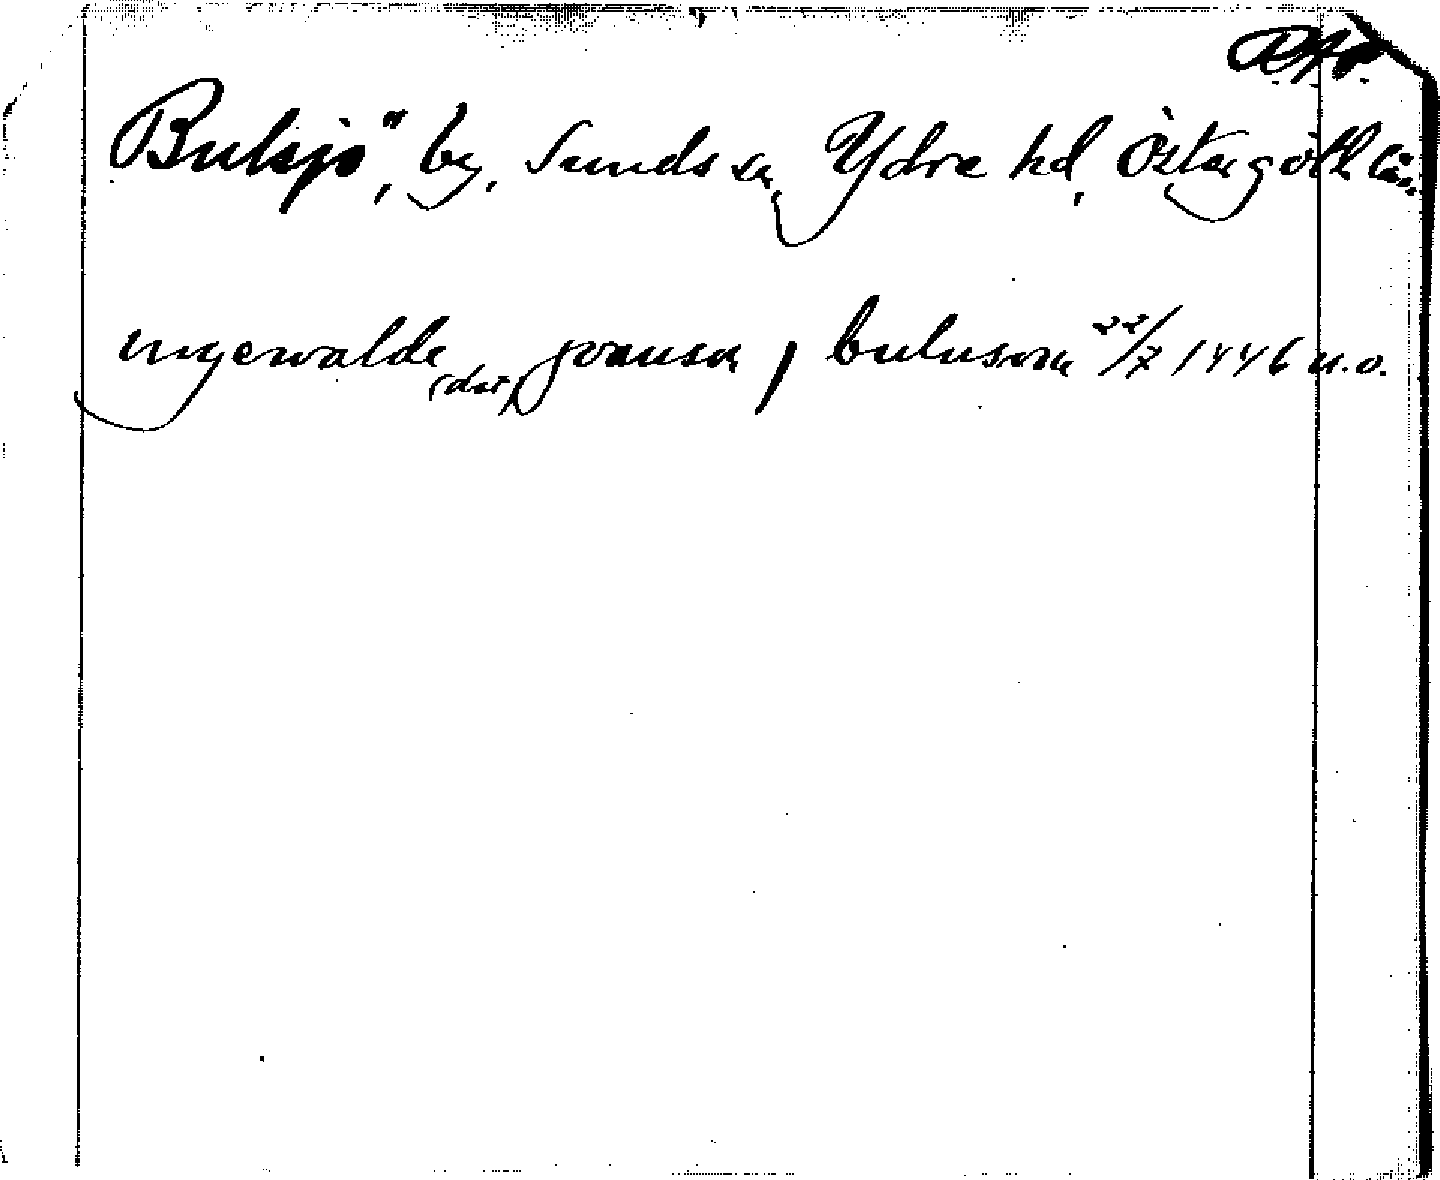 Bulsjö, by, Sunds sn, Ydre hd, Östergötl län
ingewalde (dat) joansson j bulusiona 22/7 1446 u.o.